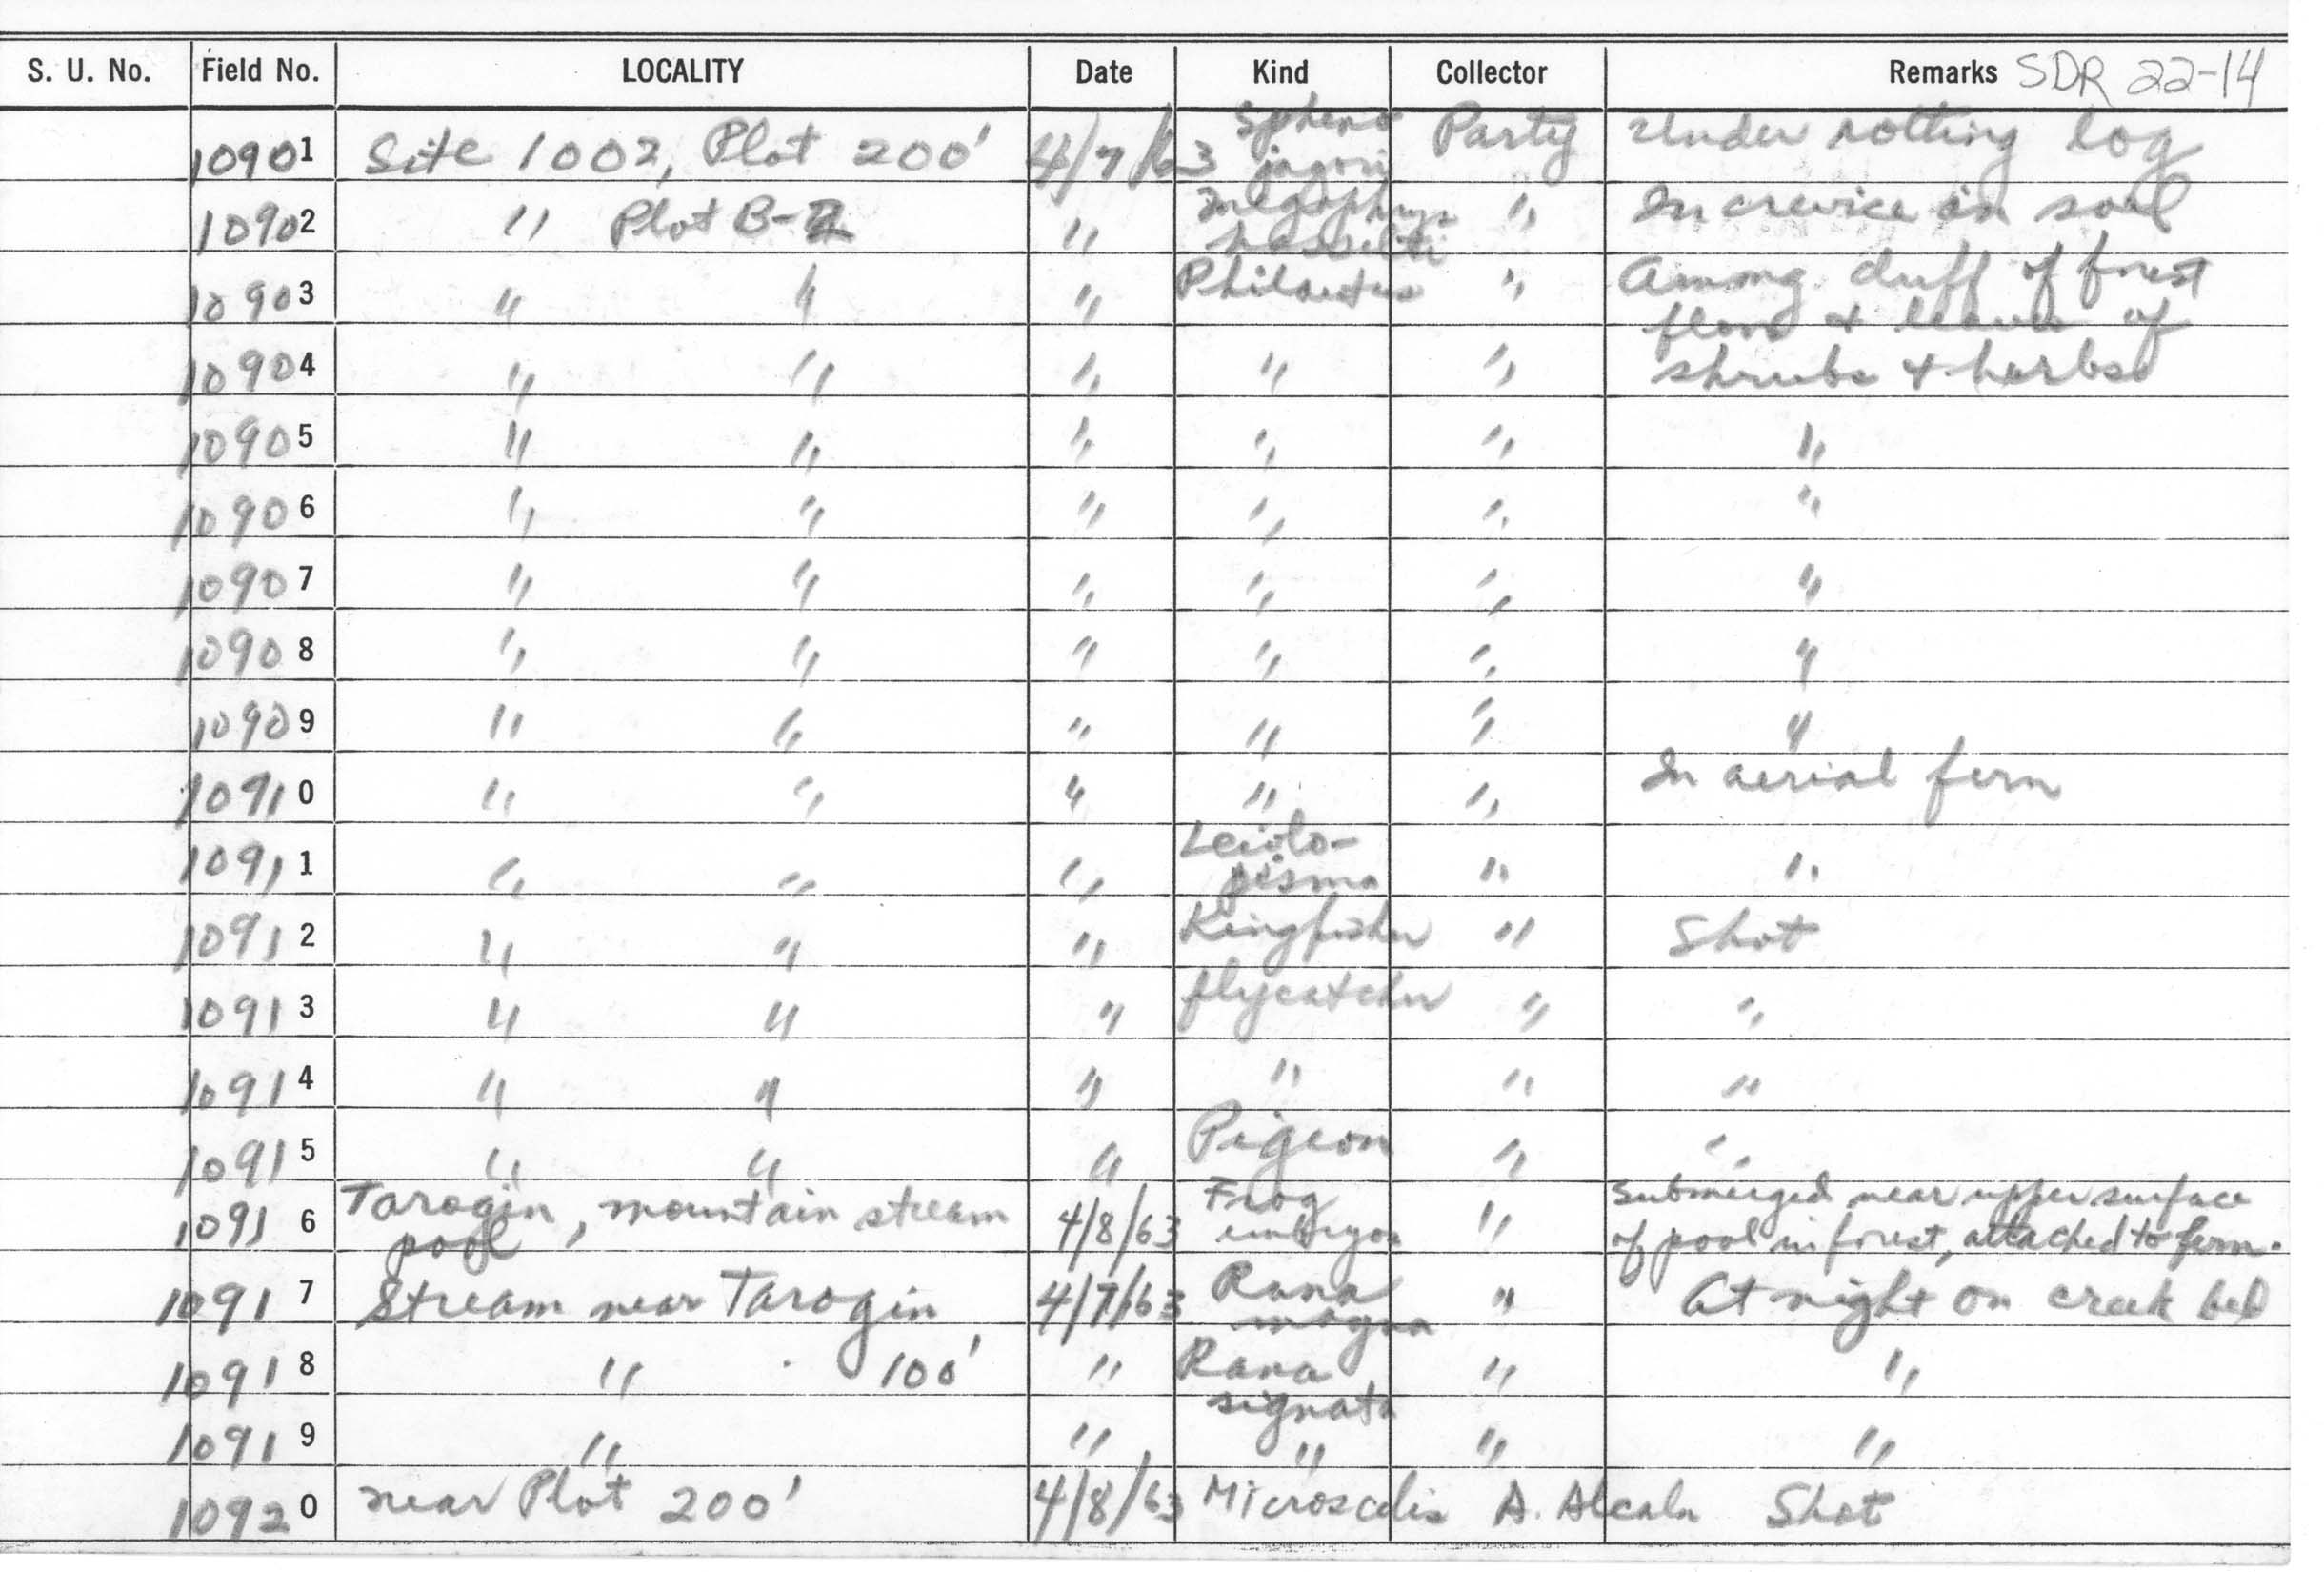 S. U. No. Field No. LOCALITY Date Kind Collector Remarks SDR 22-14
10901 Site 1002, Plot 200' 4/7/63 Spheno jagori Party Under rotting log
10902 " Plot B-2 " Megophrys hasselti " In crevice in soil
10903 " " " Philautus " Among duff of forest
floor & leaves of
10904 " " " " " shrubs & herbs
10905 " " " " " "
10906 " " " " " "
10907 " " " " " "
10908 " " " " " "
10909 " " " " " "
10910 " " " " " In aerial fern
10911 " " " Leiolo-
pisma " "
10912 " " " Kingfisher " Shot
10913 " " " flycatcher " "
10914 " " " " " "
10915 " " " Pigeon " "
10916 Tarogin, mountain stream
pool 4/8/63 Frog
embryos " Submerged near upper surface
of pool in forest, attached to fern.
10917 Stream near Tarogin 4/7/63 Rana
magna " At night on creek bed
10918 " 100' " Rana
signata " "
10919 " " " " "
10920 near Plot 200' 4/8/63 Microscelis A. Alcala Shot